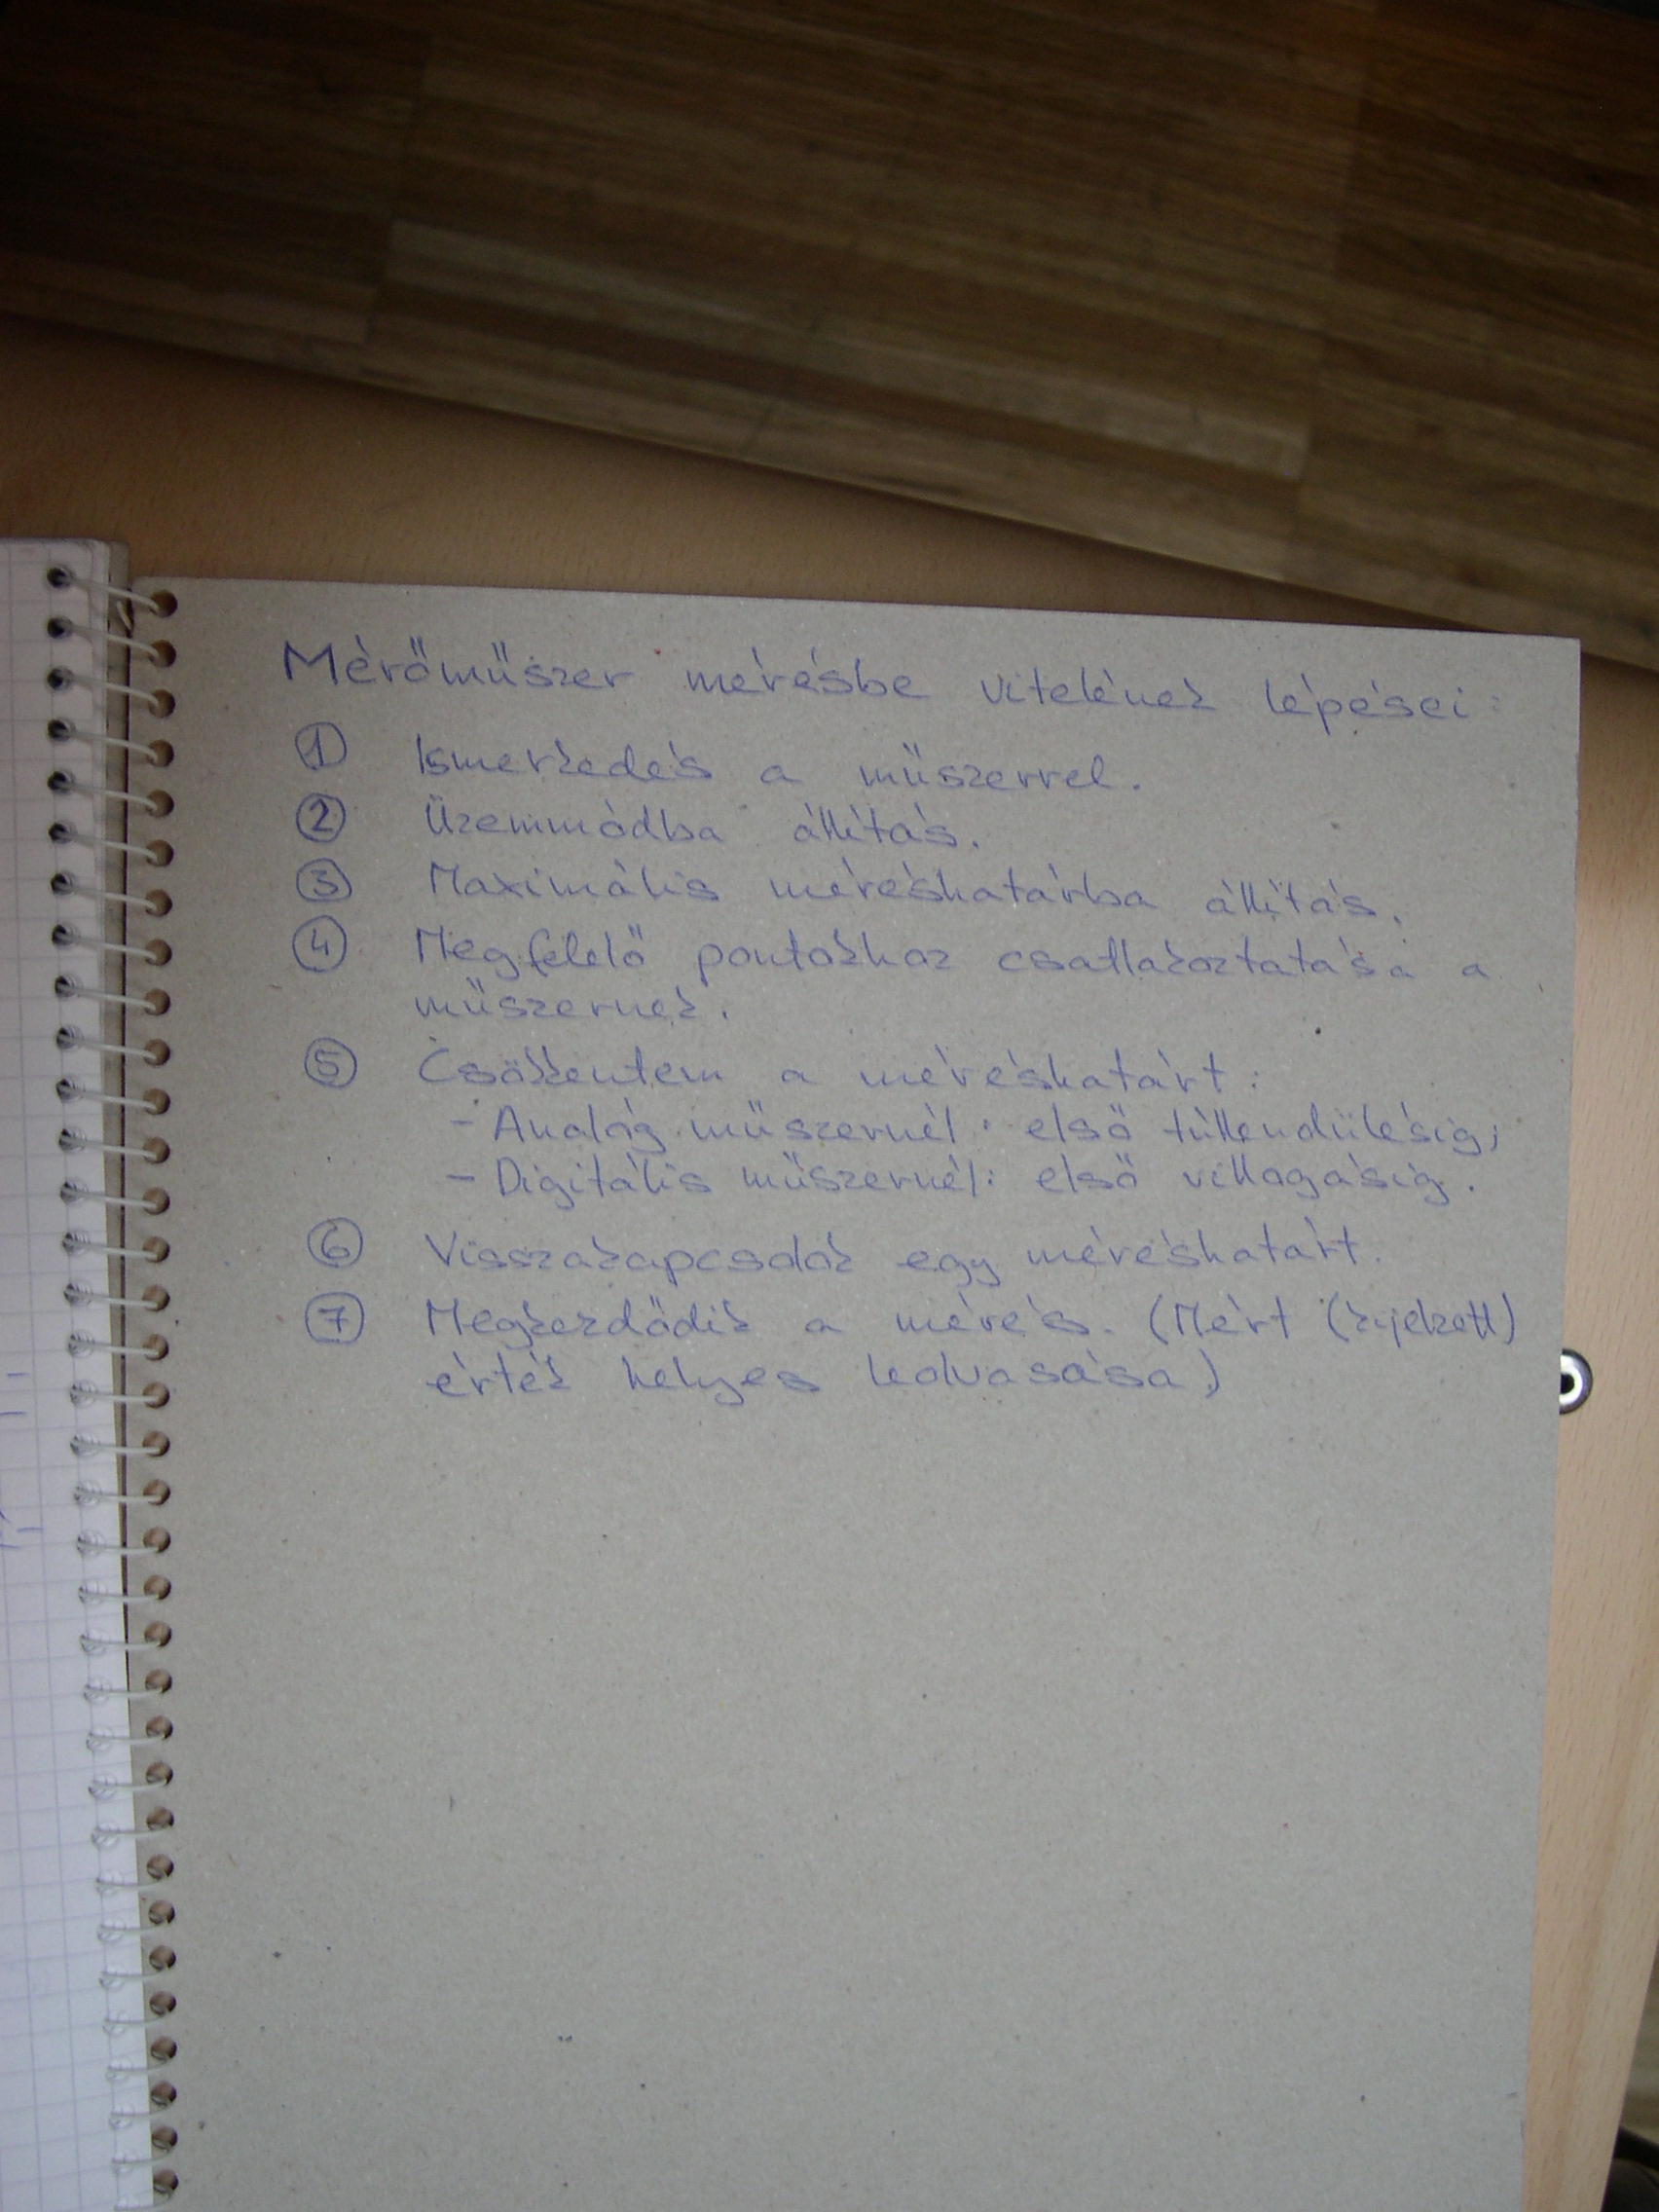 Mérőműszer mérésbe vitelének lépései:
① Ismerkedés a műszerrel.
② Üzemmódba állítás.
③ Maximális méréshatárba állítás.
④ Megfelelő pontokhoz csatlakoztatása a
műszernek.
⑤ Csökkentem a méréshatárt:
- Analóg műszernél: első túllendülésig;
- Digitális műszernél: első villogásig.
⑥ Visszakapcsolok egy méréshatárt.
⑦ Megkezdődik a mérés. (Mért (kijelzett)
érték helyes leolvasása)